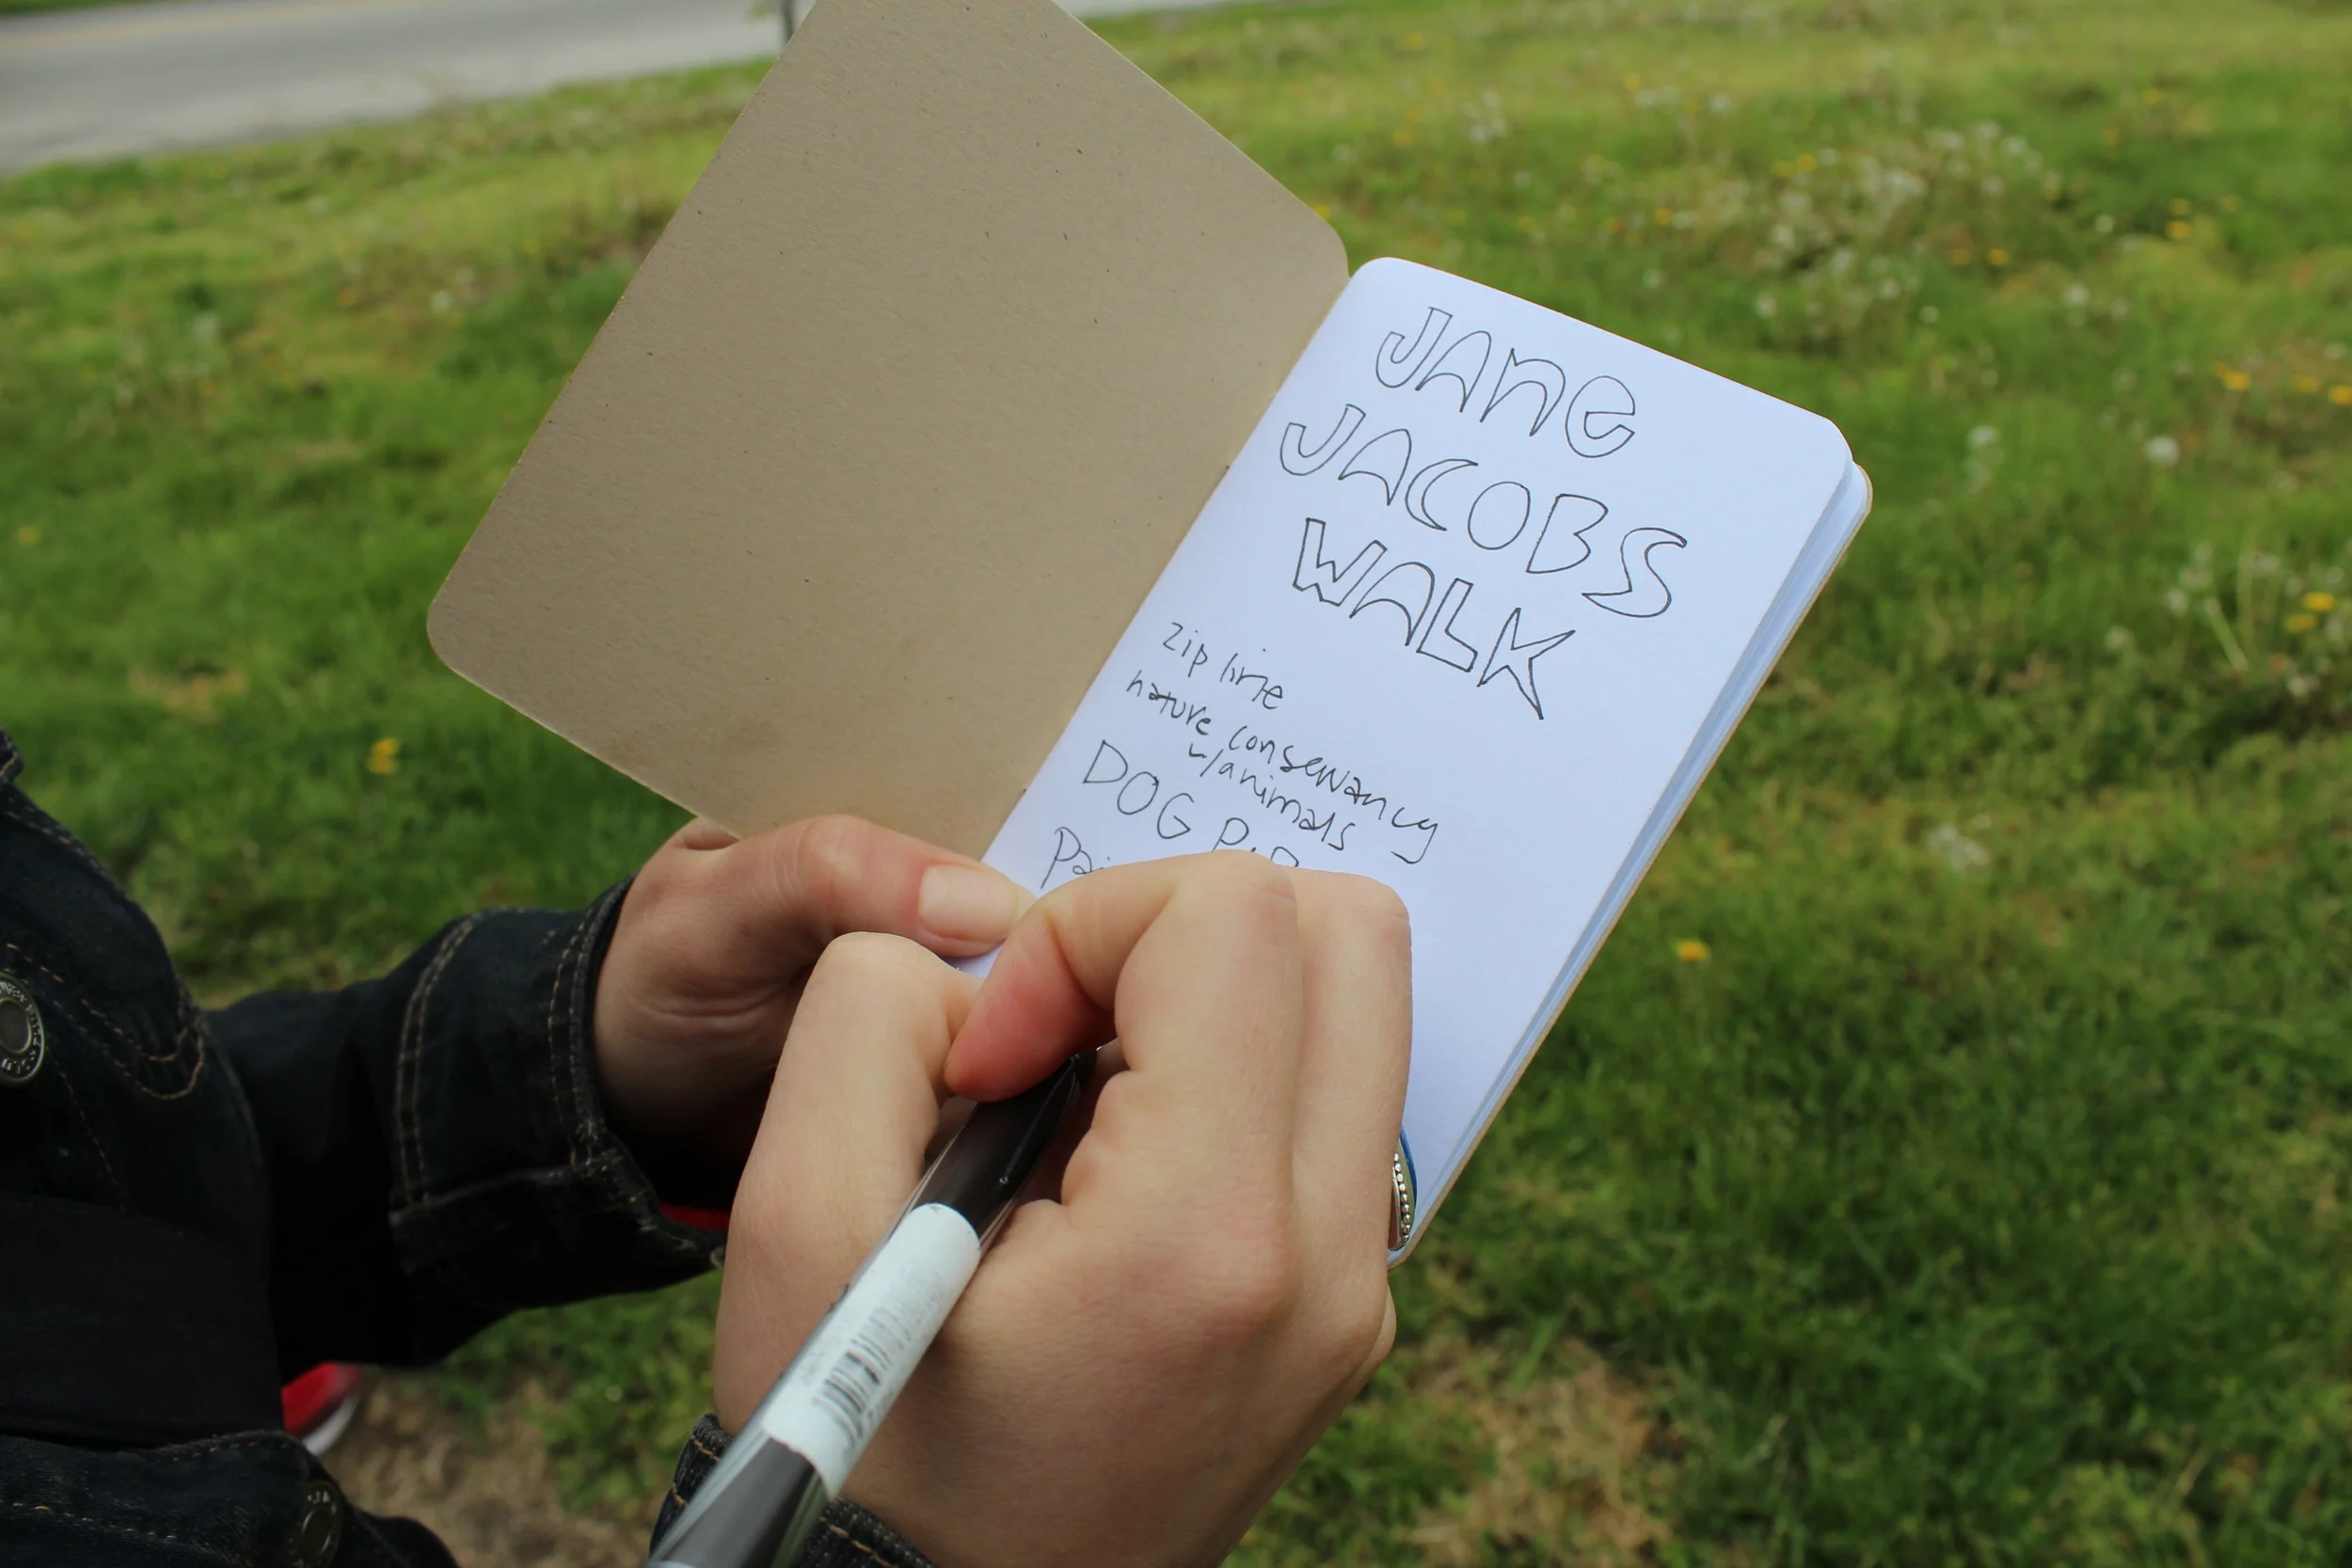 JAne
JACOBS
WALK
zip line
nature conservancy
w/animals
DOG